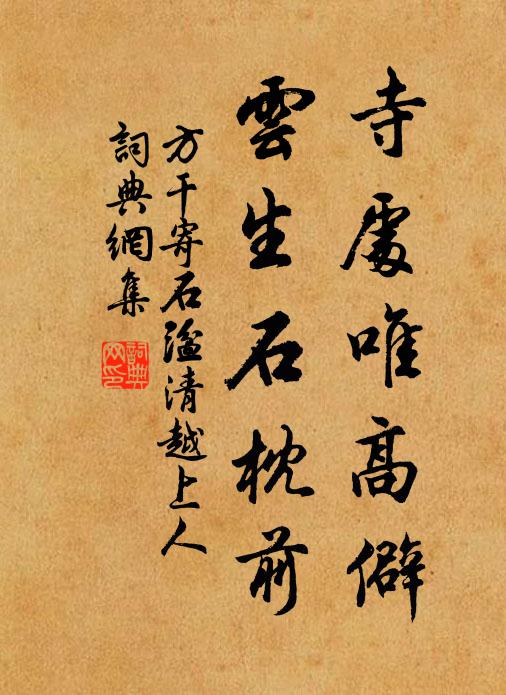 寺處唯高僻
雲生石枕前
方干寄石湓清越上人
詞典網集
詞典
网印